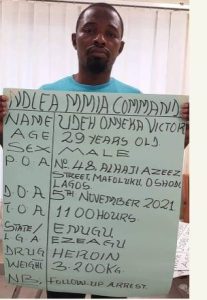 NDLEA MMIA COMMAND
NAME UDEH ONYEKA VICTOR
AGE 29 YEARS OLD
SEX MALE
P.O.A Nº 48, ALHAJI AZEEZ
STREET, MAFOLUKU, OSHODI
LAGOS.
D.O.A 5TH NOVEMBER 2021
T.O.A 1100 HOURS.
STATE/ ENUGU
LGA EZEAGU
DRUG HEROIN
WEIGHT 3.200KG.
NB. FOLLOW UP ARREST.